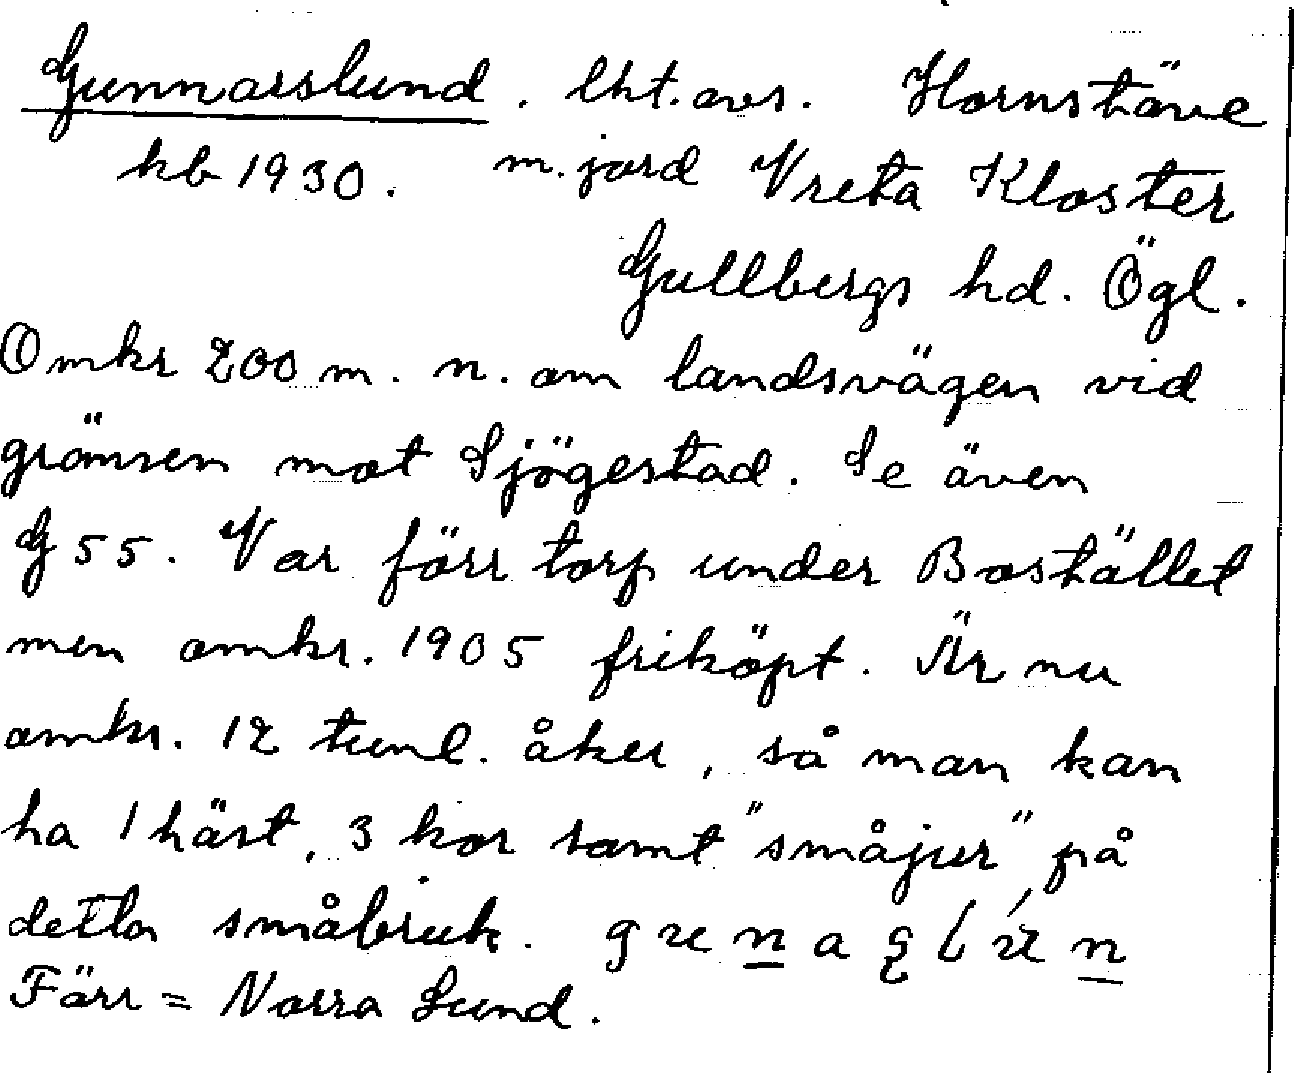 Gunnarslund. lht. avs. Hornstäve
kb 1930. m. jord Vreta Kloster
Gullbergs hd. Ögl.
Omkr 200 m. n. om landsvägen vid
gränsen mot Sjögestad. Se även
G 55. Var förr torp under Bostället
men omkr. 1905 friköpt. Är nu
omkr. 12 tunl. åker, så man kan
ha 1 häst, 3 kor samt "småjur" på
detta småbruk.
Förr = Norra Lund.